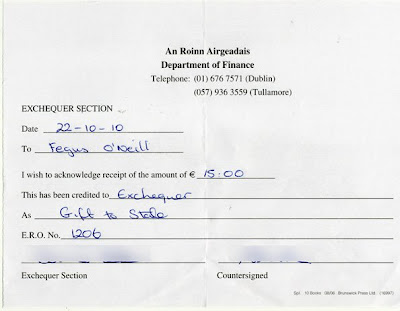 An Roinn Airgeadais
Department of Finance
Telephone: (01) 676 7571 (Dublin)
(057) 936 3559 (Tullamore)
EXCHEQUER SECTION
Date 22-10-10
To Fegus O'Neill
I wish to acknowledge receipt of the amount of € 15.00
This has been credited to Exchequer
As Gift to State
E.R.O. No. 1206
Exchequer Section Countersigned